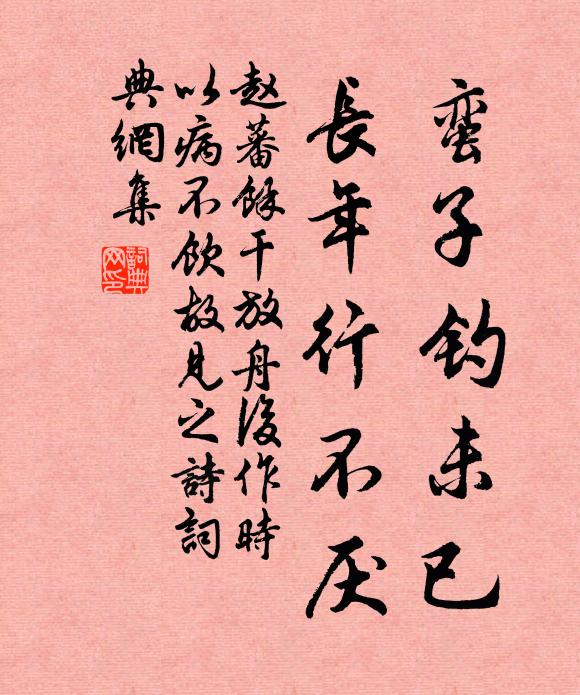 蛮子钓未已
長年行不厌
赵蕃餘干放舟後作時
以病不飲故見之詩詞
典網集
詞典网印